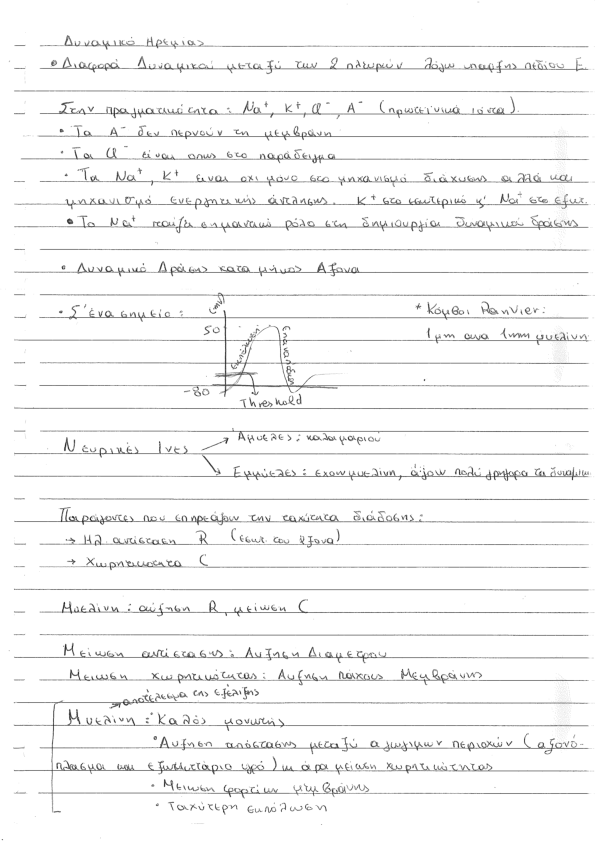 Δυναμικό Ηρεμίας
• Διαφορά Δυναμικού μεταξύ των 2 πλευρών λόγω υπαρξης πεδίου Ε.
Στην πραγματικότητα: Na⁺, K⁺, Cl⁻, A⁻ (πρωτεϊνικά ιόντα).
• Τα A⁻ δεν περνούν τη μεμβράνη
• Τα Cl⁻ είναι οπως στο παράδειγμα
• Τα Na⁺, K⁺ ειναι οχι μόνο στο μηχανισμό διάχυσης αλλά και
μηχανισμό ενεργητικής άντλησης. K⁺ στο εσωτερικό κ' Na⁺ στο εξωτ.
• Το Na⁺ παίζει σημαντικό ρόλο στη δημιουργία δυναμικού δράσης
• Δυναμικό Δράσης κατα μήκος Αξονα
• Σ'ένα σημείο:
(mV)
50
-80
εκπόλωση
επαναπόλωση
Threshold
* Κόμβοι Ranvier:
1μm ανα 1mm μυελίνη
Νευρικές Ινες
→ Άμυελες: καλαμαριού
→ Εμμύελες: εχουν μυελίνη, άγουν πολύ γρήγορα τα δυναμικα
Παράγοντες που επηρεάζουν την ταχύτητα διάδοσης:
→ Ηλ αντίσταση R (εσωτ. του αξονα)
→ Χωρητικότητα C
Μυελίνη: αύξηση R, μείωση C
Μείωση αντίστασης: Αυξηση Διαμετρου
Μειωση χωρητικότητας: Αυξηση παχους Μεμβράνης
→ αποτέλεσμα της εξέλιξης
Μυελίνη: • Καλός μονωτής
• Αυξηση απόστασης μεταξύ αγωγιμων περιοχών (αξονό-
πλασμα και εξωκυττάριο υγρό) κ άρα μείωση χωρητικότητας
• Μειωση φορτίων μεμβράνης
• Ταχύτερη εκπόλωση